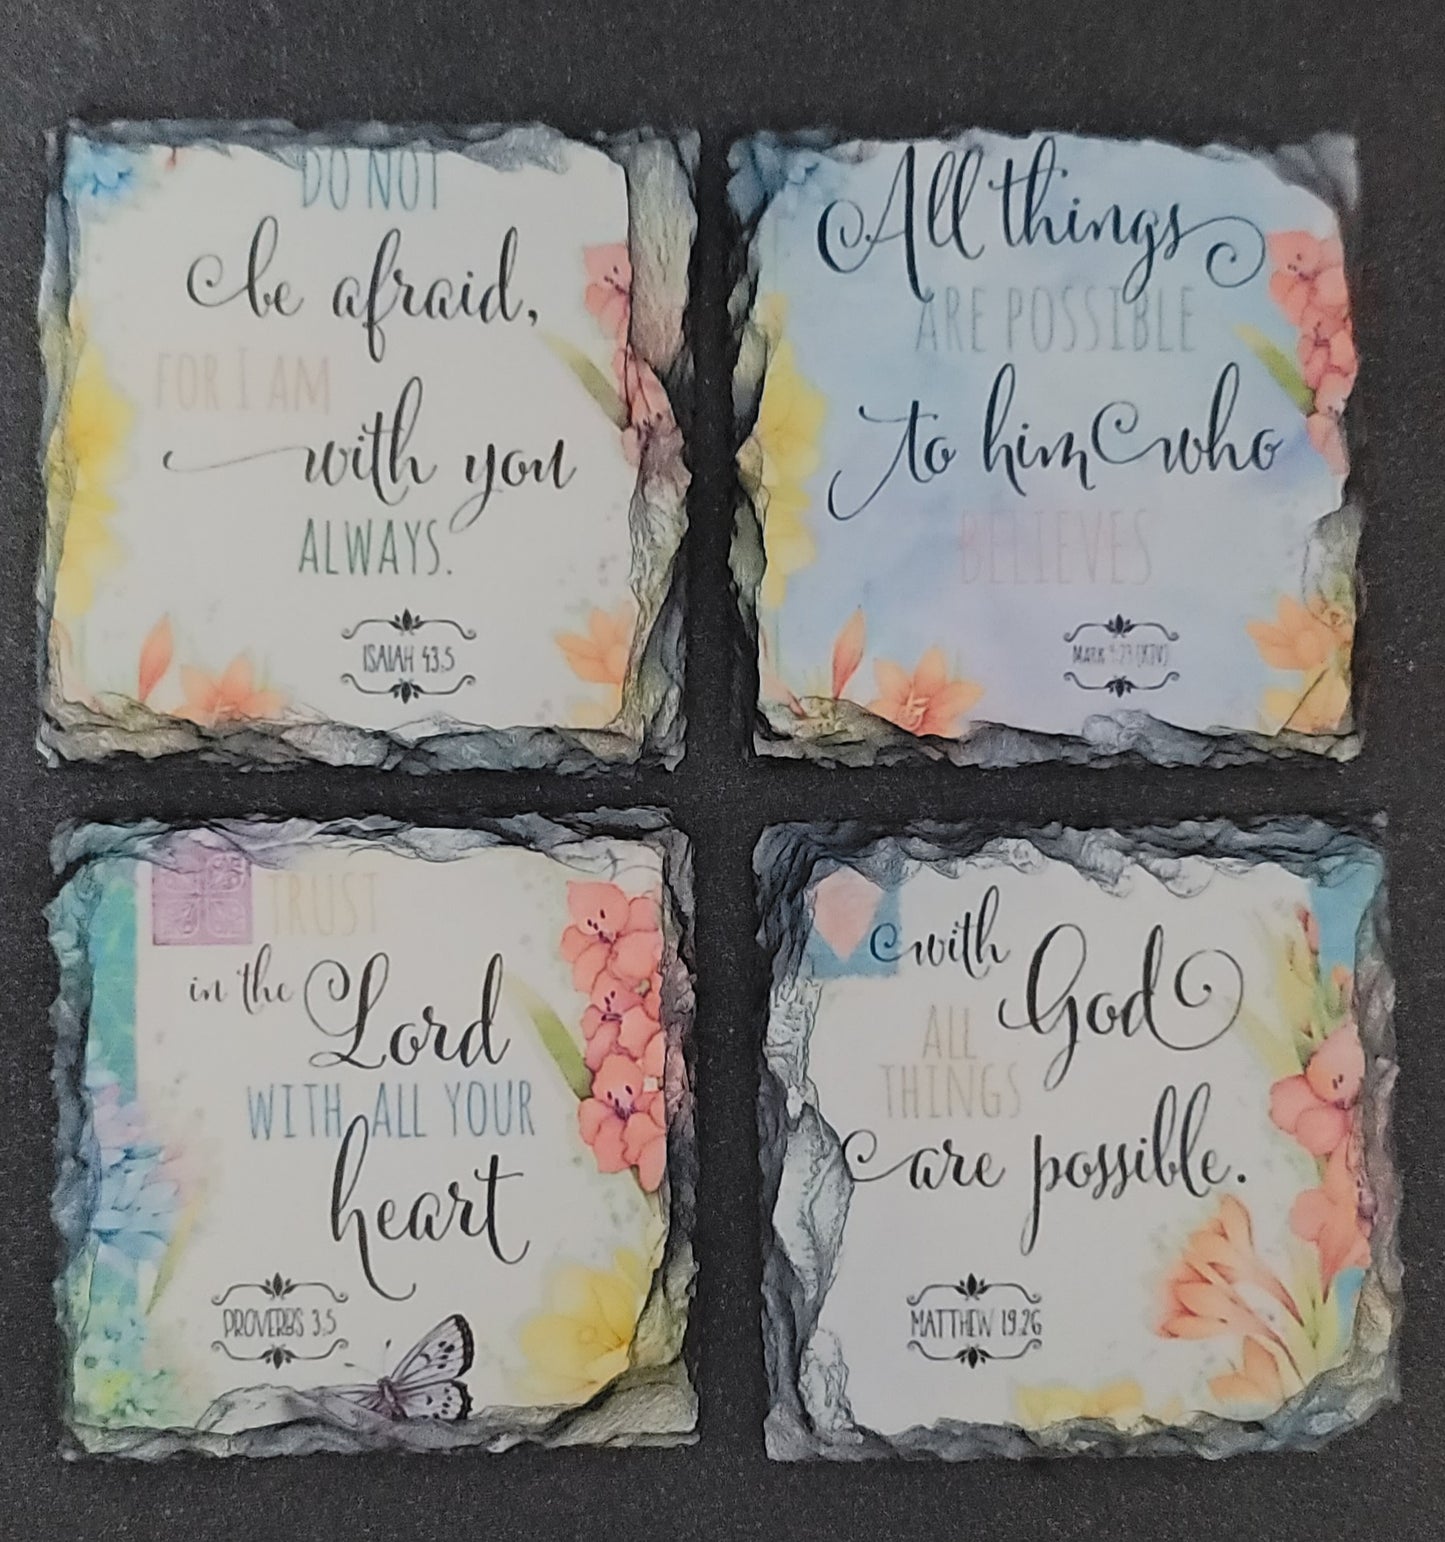 DO NOT
be afraid,
FOR I AM
with you
ALWAYS.
ISAIAH 43.5
All things
ARE POSSIBLE
to him who
BELIEVES
MARK 9:23 (KJV)
TRUST
in the Lord
WITH ALL YOUR
heart
PROVERBS 3.5
with God
ALL
THINGS
are possible.
MATTHEW 19.26